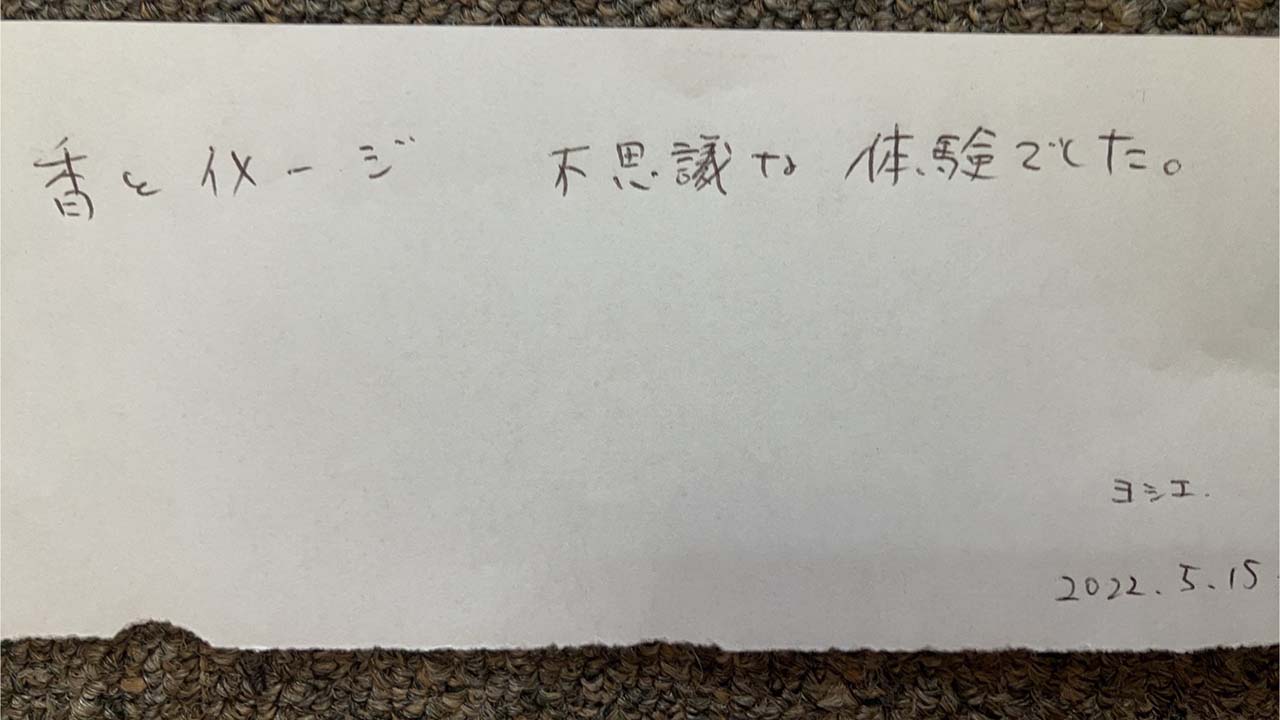 香とイメージ 不思議な体験でした。
ヨシエ.
2022.5.15